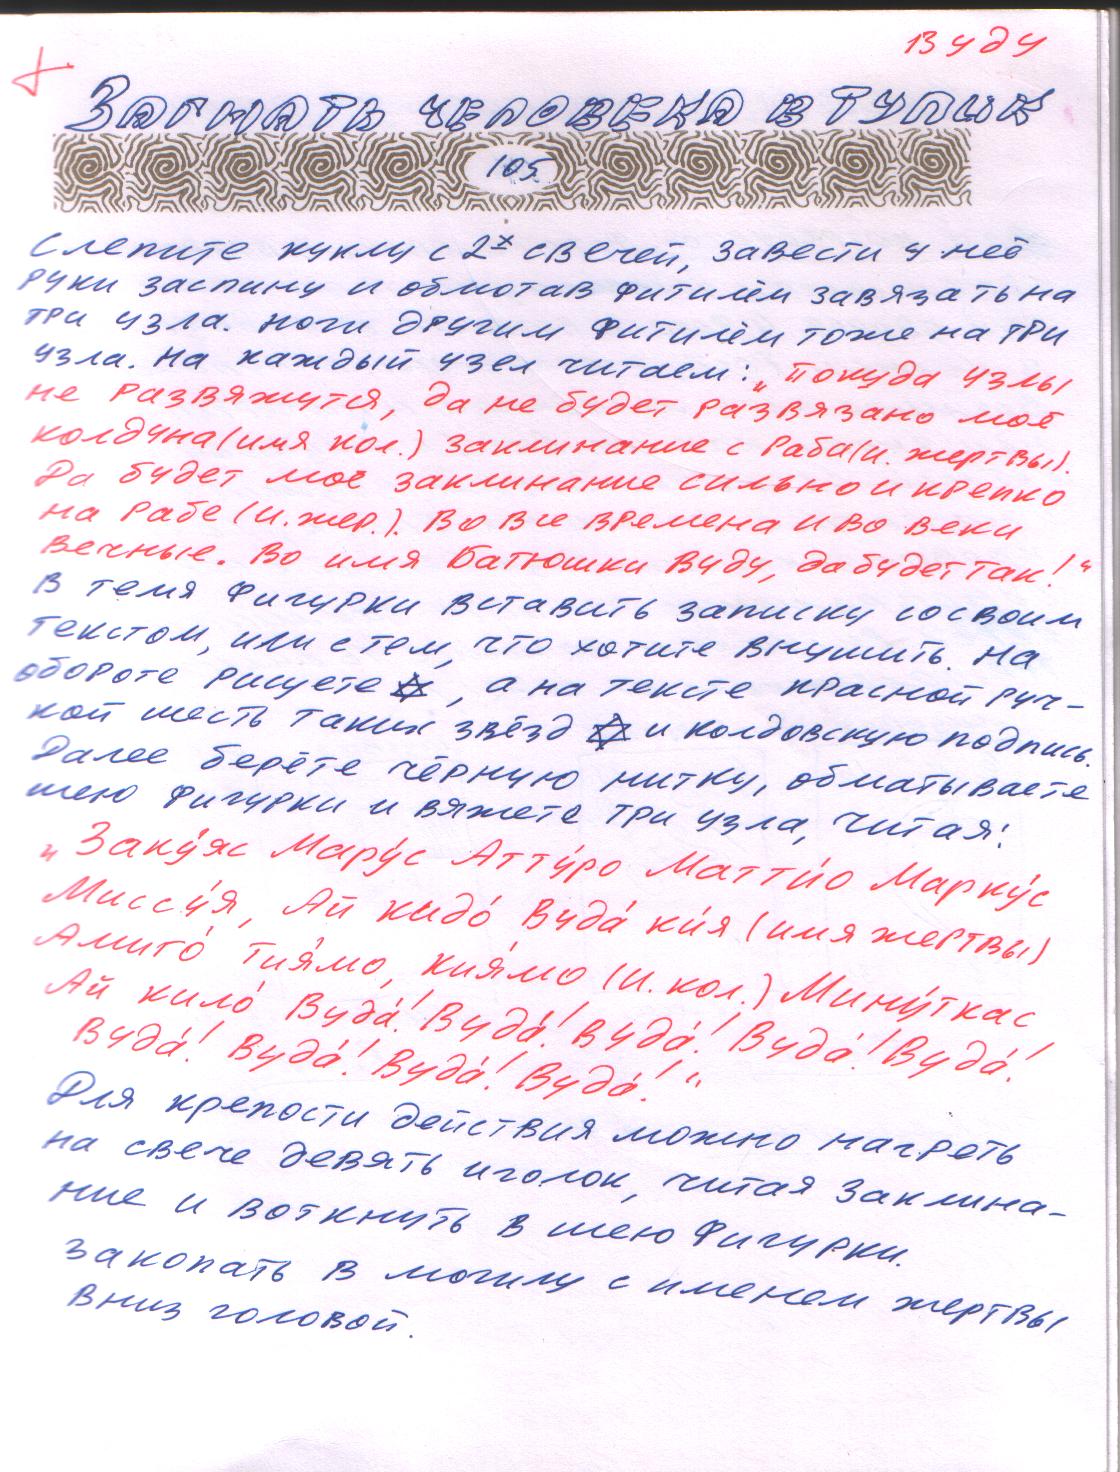 Вуду
Загнать человека в тупик
105.
Слепите куклу с 2х свечей, завести у неё
руки заспину и обмотав фитилём завязать на
три узла. Ноги другим фитилём тоже на три
узла. На каждый узел читаем: „Покуда узлы
не развяжутся, да не будет развязано моё
колдуна (имя кол.) заклинание с раба (и. жертвы).
Да будет моё заклинание сильно и крепко
на рабе (и. жер.). Во все времена и во веки
вечные. Во имя Батюшки Вуду, да будет так!“
В темя фигурки вставить записку со своим
текстом, или с тем, что хотите внушить. На
обороте рисуете ✡, а на тексте красной руч-
кой шесть таких звёзд ✡ и колдовскую подпись.
Далее берёте чёрную нитку, обматываете
шею фигурки и вяжете три узла, читая:
„Заку́яс Мару́с Атту́ро Матти́о Марку́с
Миссу́я, Ай кидо́ Вуда́ ки́я (имя жертвы)
Амиго́ Тия́мо, кия́мо (и. кол.) Мину́ткас
Ай кило́ Вуда́! Вуда́! Вуда́! Вуда́! Вуда́!
Вуда́! Вуда́! Вуда́! Вуда́!“
Для крепости действия можно нагреть
на свече девять иголок, читая заклина-
ние и воткнуть в шею фигурки.
Закопать в могилу с именем жертвы
вниз головой.